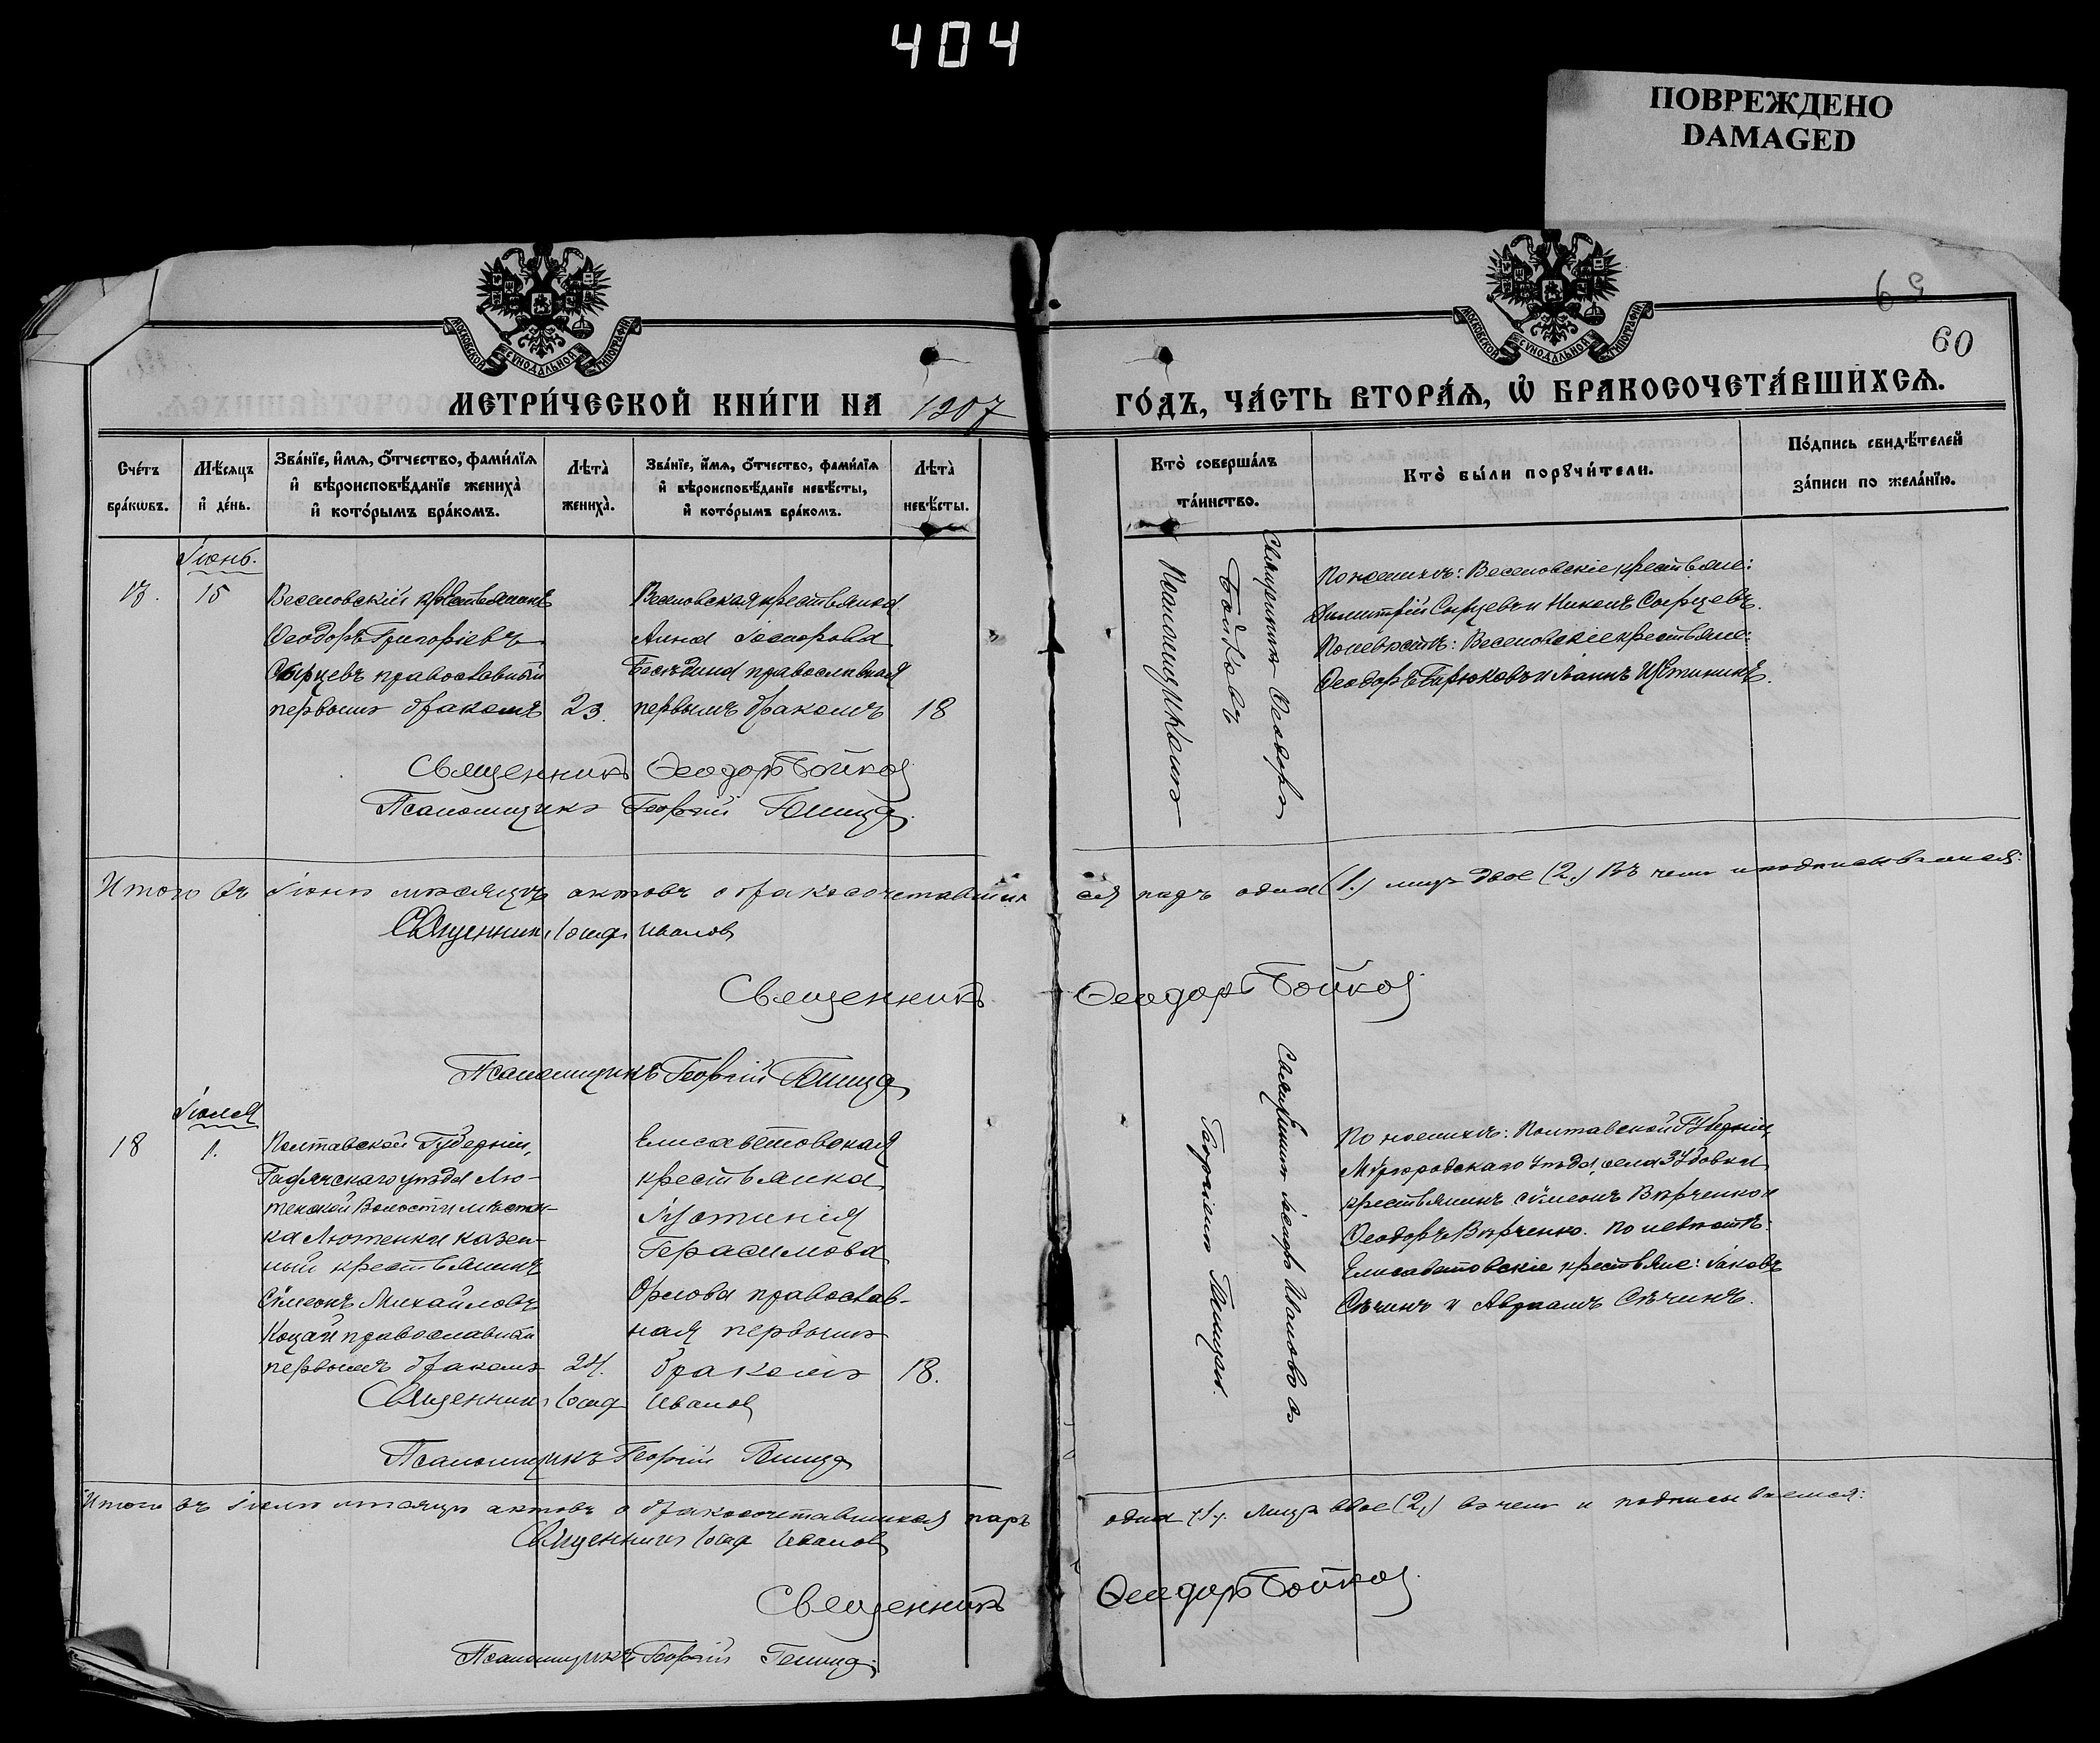 404
ПОВРЕЖДЕНО
DAMAGED
69
60
МОСКОВСКОЙ СѴНОДАЛЬНОЙ ТИПОГРАФІИ
МОСКОВСКОЙ СѴНОДАЛЬНОЙ ТИПОГРАФІИ
МЕТРИ́ЧЕСКОЙ КНИ́ГИ НА 1907
ГО́ДЪ, ЧА́СТЬ ВТОРА́Ѧ, Ѡ҆ БРАКОСОЧЕТА́ВШИХСѦ.
Сче́тъ бра́кѡвъ.
Мѣ́сѧцъ и҆ де́нь.
Зва́нїе, и҆́мѧ, ѻ҆́тчество, фами́лїѧ и҆ вѣроисповѣ́данїе жениха̀ и҆ кото́рымъ бра́комъ.
Лѣта̀ жениха̀.
Зва́нїе, и҆́мѧ, ѻ҆́тчество, фами́лїѧ и҆ вѣроисповѣ́данїе невѣ́сты, и҆ кото́рымъ бра́комъ.
Лѣта̀ невѣ́сты.
Кто̀ соверша́лъ та́инство.
Кто̀ бы́ли порꙋчи́тели.
По́дпись свидѣ́телей за́писи по жела́нїю.
Іюнь.
17. 15
Веселовскій крестьянинъ
Ѳеодоръ Григоріевъ
Сырцевъ православный
первымъ бракомъ 23.
Веселовская крестьянка
Анна
Бесѣдина православная
первымъ бракомъ 18
Священникъ Ѳеодоръ
Бойковъ
Псаломщикомъ
По женихѣ: Веселовскіе крестьяне:
Димитрій Сырцевъ и Никонъ Сырцевъ.
По невѣстѣ: Веселовскіе крестьяне:
Ѳеодоръ Бирюковъ и Іоаннъ Щетининъ.
Священникъ Ѳеодоръ Бойков
Псаломщикъ Георгій
Итого въ Іюнѣ мѣсяцѣ актовъ о бракосочетавших
ся паръ одна (1.) лицъ двое (2.) Въ чемъ и подписываемся:
Священник Іосиф Иванов
Священникъ Ѳеодоръ Бойков
Псаломщикъ Георгій
Іюля
18 1.
Полтавской Губерніи,
Гадячскаго уѣзда Лю-
тенской Волости мѣстеч-
ка Лютенки казен-
ный крестьянинъ
Сѵмеонъ Михайловъ
Коцай православный
первымъ бракомъ 24.
Елисаветовская
крестьянка
Іустинія
Герасимова
Орлова православ-
ная первымъ
бракомъ 18.
Священникъ Іосифъ Ивановъ съ
Георгіемъ
По женихѣ: Полтавской Губерніи,
Миргородскаго уѣзда, села Зубовки
крестьянинъ Сѵмеонъ Вирченко и
Ѳеодоръ Вирченко. По невѣстѣ:
Елисаветовскіе крестьяне: Іаковъ
Сѣчинъ и Авраамъ Сѣчинъ.
Священник Іосиф Иванов
Псаломщикъ Георгій
Итого въ Іюлѣ мѣсяцѣ актовъ о бракосочетавшихся паръ
одна (1). лицъ двое (2,) въ чемъ и подписываемся:
Священник Іосиф Иванов
Священникъ Ѳеодоръ Бойков
Псаломщикъ Георгій